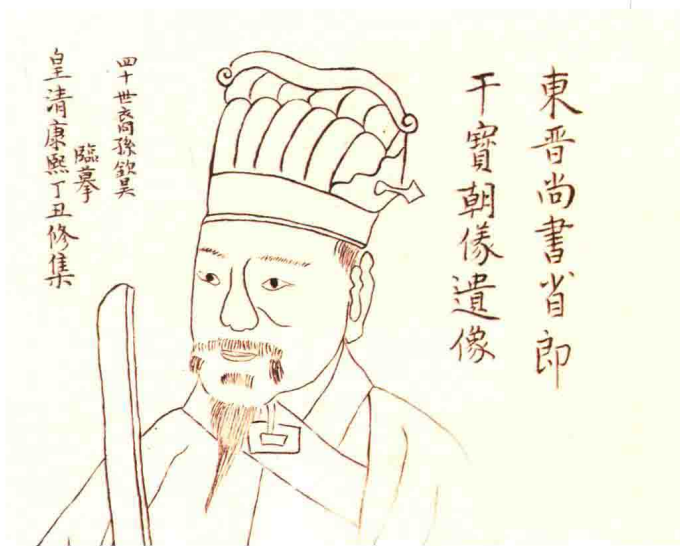 東晋尚書省郎
干寳朝㨾遺像
四十世裔孫欽昊
臨摹
皇清康熙丁丑修集